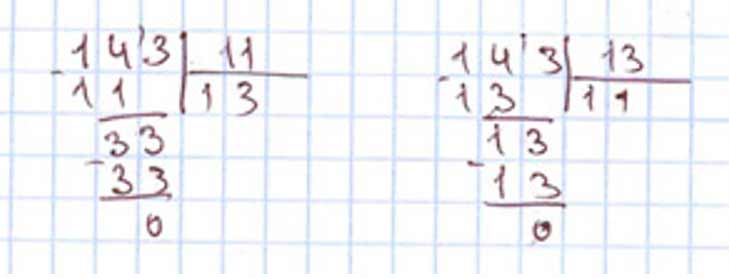 1 4'3 11
- 1 1 1 3
3 3
- 3 3
0
1 4' 3 13
- 1 3 1 1
1 3
- 1 3
0